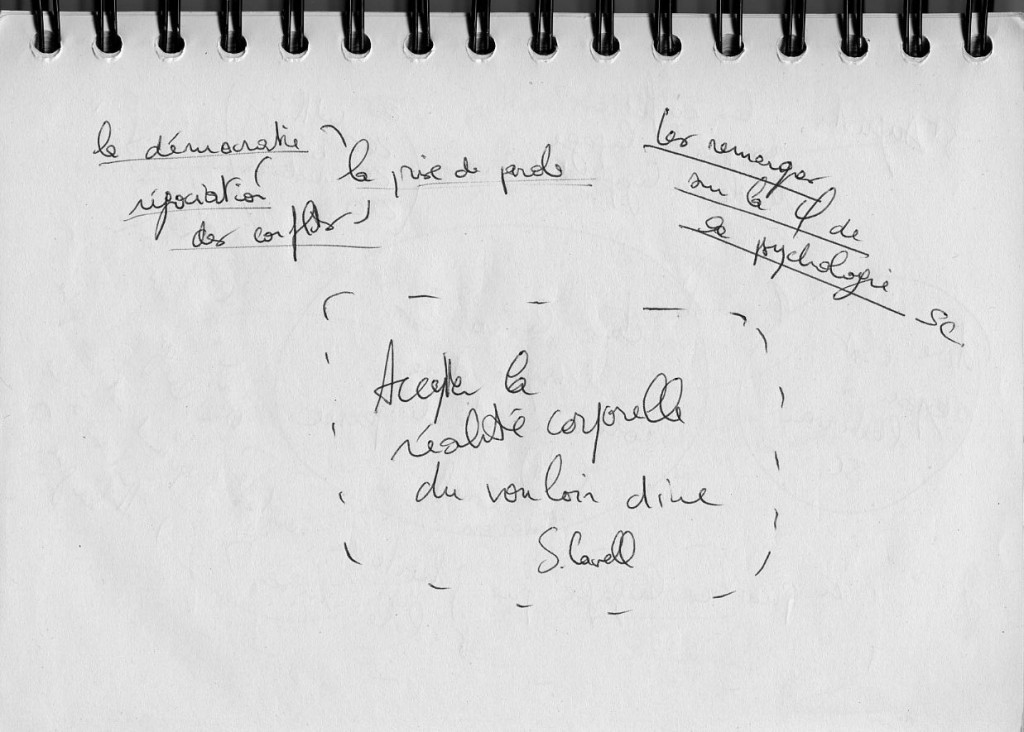 la démocratie
négociation
des conflits
la prise de parole
les remarques
sur la φ de
la psychologie SC.
Accepter la
réalité corporelle
du vouloir dire
S. Cavell